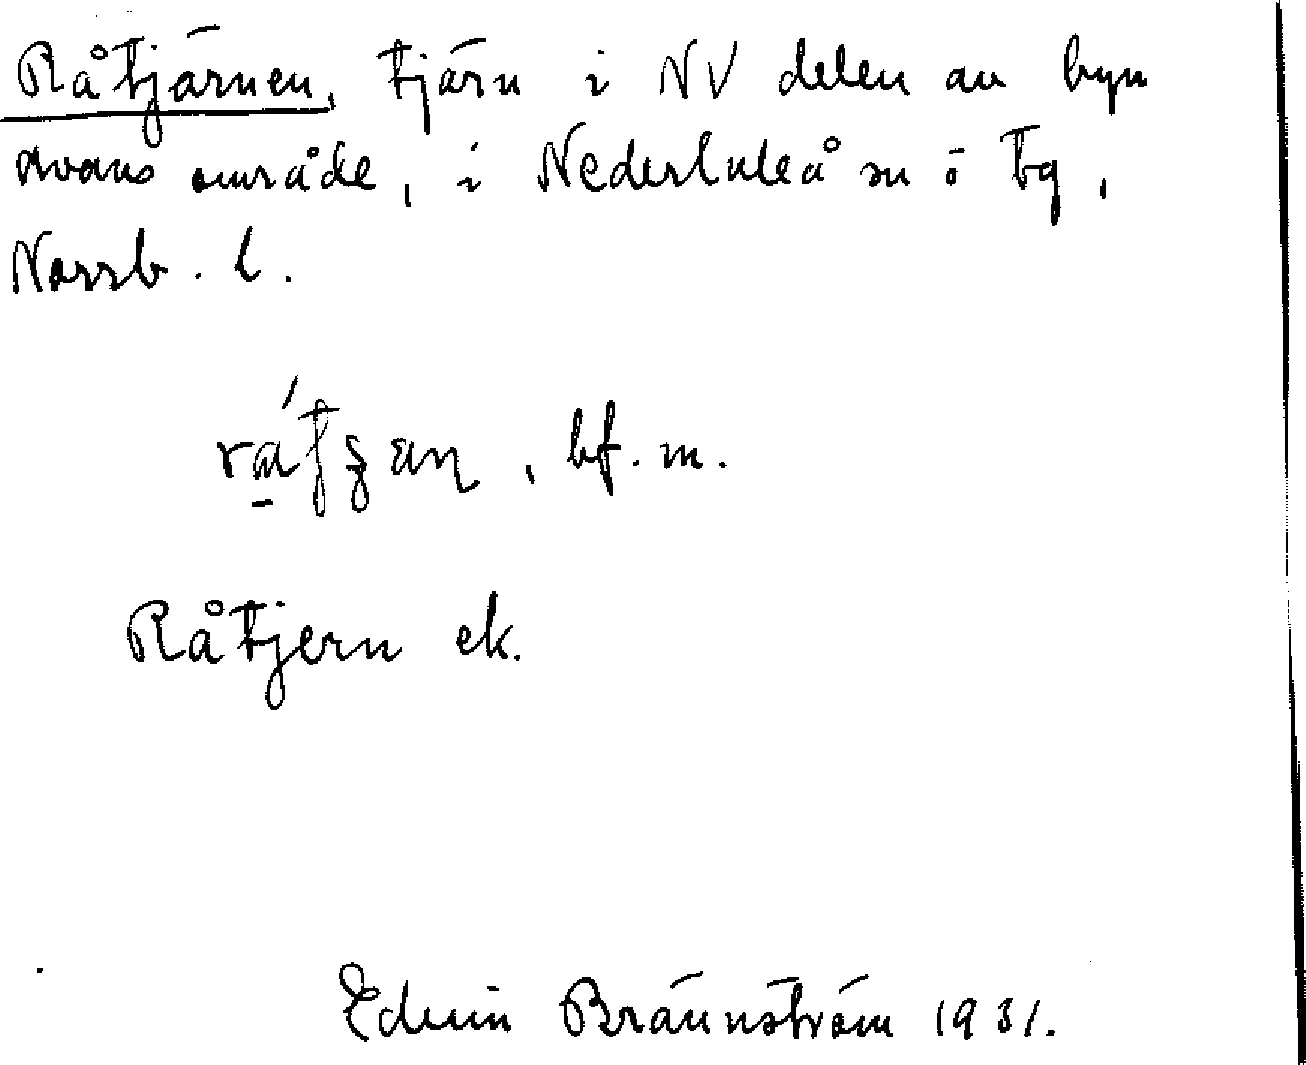 Råtjärnen, tjärn i NV delen av byn
Avans område, i Nederluleå sn ö tg,
Norrb. l.
bf. m.
Råtjern ek.
Edvin Brännström 1931.